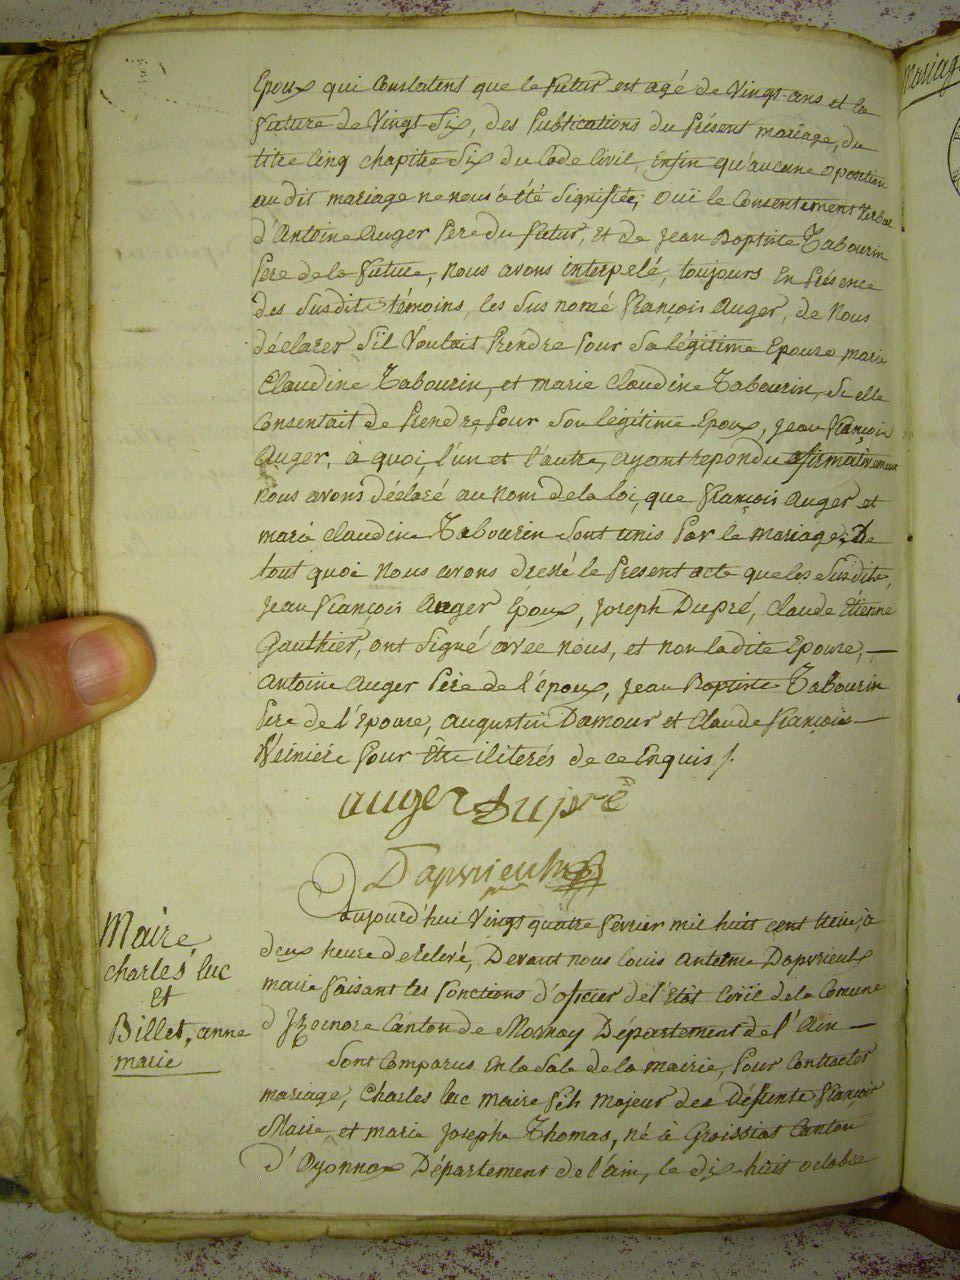 Epoux qui Constatent que le futur est agé de Vingt ans et la
future de Vingt Six, des Publications du Présent mariage, du
titre Cinq chapitre Six du Code Civil, enfin qu'aucune oposition
au dit mariage ne nous a été Signifiée; ouï le Consentement Verbal
d'Antoine Auger Pere du futur, et de Jean Baptiste Tabourin
Pere de la future, Nous avons interpelé, toujours En Présence
des Susdits témoins, les Sus nomé François Auger, de Nous
déclarer S'il Voulait Prendre Pour Sa légitime Epouse, marie
Claudine Tabourin, et marie Claudine Tabourin, Si elle
Consentait de Prendre Pour Son légitime Epoux, Jean François
Auger, à quoi, l'un et l'autre, ayant repondu afirmativement
Nous avons déclaré au Nom de la loi, que François Auger et
marie Claudine Tabourin Sont unis Par le mariage, De
tout quoi Nous avons dressé le Present acte que les Susdits,
Jean François Auger Epoux, Joseph Dupré, Claude Etienne
Gauthier, ont Signé avec Nous, et non ladite Epouse, —
Antoine Auger Pere de l'époux, Jean Baptiste Tabourin
Pere de l'Epouse, Augustin Damour et Claude François —
Veiniere Pour Etre iliterés de ce Enquis /.
auger Dupré
Dapvrieulx
Aujourd'hui Vingt quatre février mil huit cent treize, à
deux heure de relevé, Devant nous Louis Antelme Dapvrieulx
maire faisant les fonctions d'oficier de l'Etat Civil de la Comune
d'Izernore Canton de Mornay Département de l'Ain —
Maire,
charles luc
Et
Billet, anne
marie
Sont Comparus En la Sale de la mairie, Pour Contracter
mariage, Charles luc Maire fils Majeur des Défunts François
Maire, et marie Josephe Thomas, né à Groissiat Canton
d'Oyonnax Département de l'ain, le dix huit octobre
Mariage